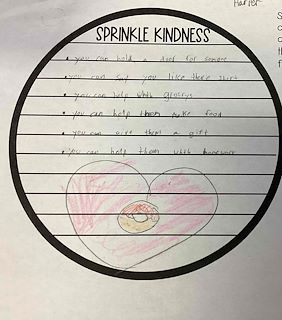 Harler
SPRINKLE KINDNESS
• you can hold a door for somone
• you can say you like there shirt
• you can help with grocrys
• you can help them make food
• you can give them a gift
• you can help them with homework